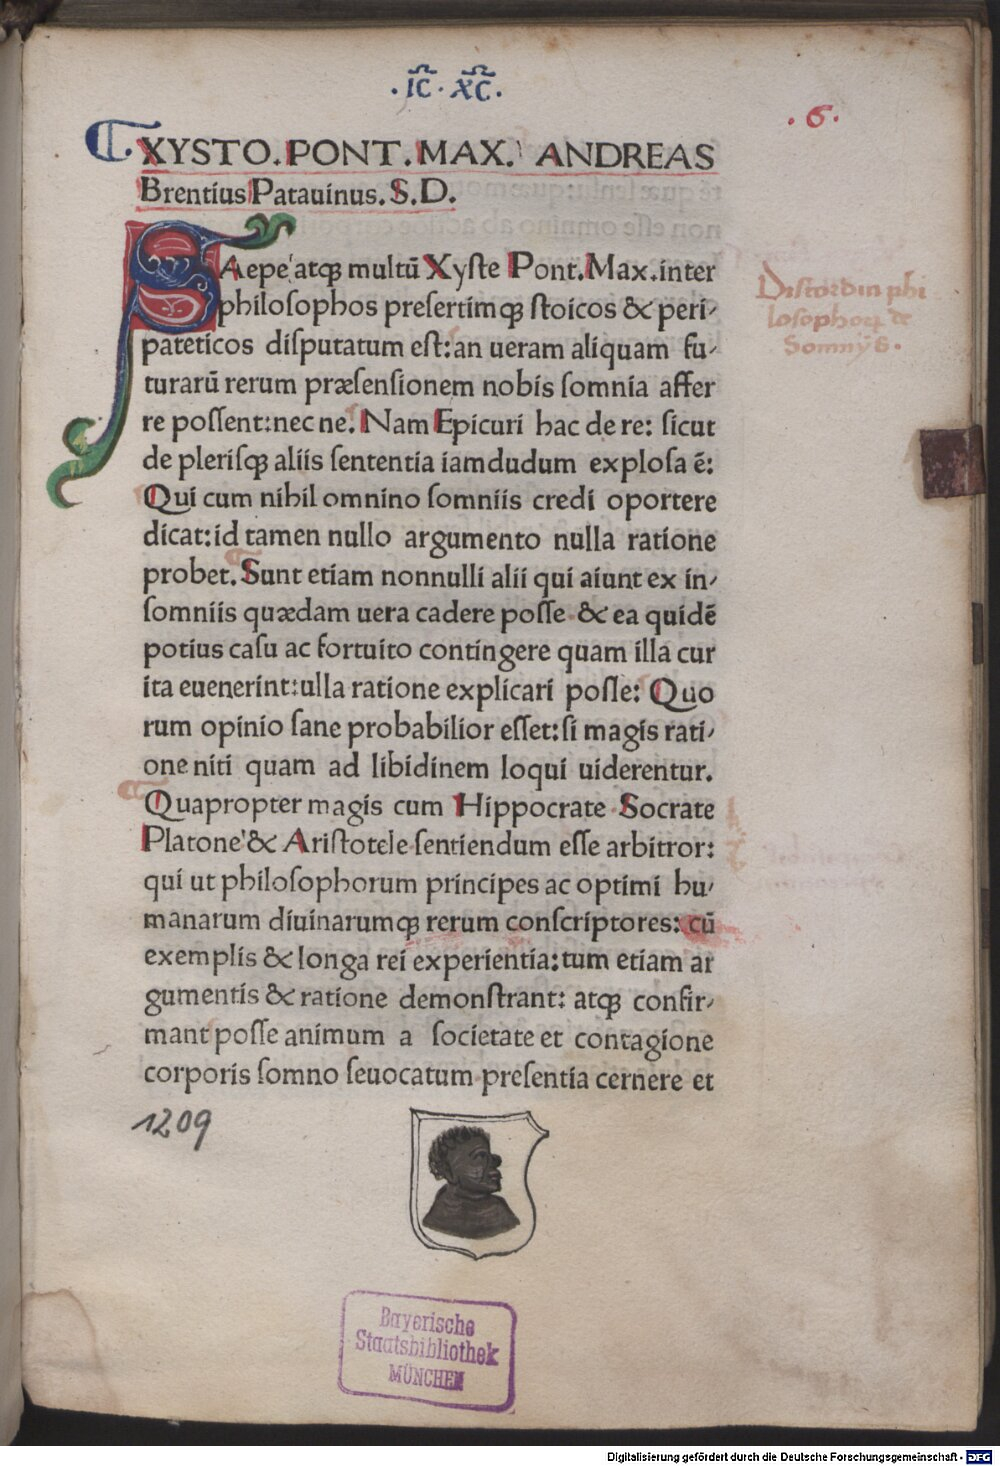 .IC̅.XC̅.
.6.
XYSTO.PONT.MAX. ANDREAS
Brentius Patauinus.S.D.
SAepe atqꝫ multū Xyste Pont.Max.inter
philoſophos preſertimqꝫ ſtoicos & peri-
pateticos diſputatum eſt:an ueram aliquam fu-
turarū rerum præſenſionem nobis ſomnia affer
re poſſent:nec ne. Nam Epicuri hac de re: ſicut
de pleriſqꝫ aliis ſententia iamdudum exploſa ē:
Qui cum nihil omnino ſomniis credi oportere
dicat:id tamen nullo argumento nulla ratione
probet. Sunt etiam nonnulli alii qui aiunt ex in-
ſomniis quædam uera cadere poſſe & ea quidē
potius caſu ac fortuito contingere quam illa cur
ita euenerint:ulla ratione explicari poſſe: Quo
rum opinio ſane probabilior eſſet:ſi magis rati-
one niti quam ad libidinem loqui uiderentur.
Quapropter magis cum Hippocrate Socrate
Platone & Ariſtotele ſentiendum eſſe arbitror:
qui ut philoſophorum principes ac optimi hu-
manarum diuinarumqꝫ rerum conſcriptores: cū
exemplis & longa rei experientia:tum etiam ar
gumentis & ratione demonſtrant: atqꝫ confir-
mant poſſe animum a ſocietate et contagione
corporis ſomno ſeuocatum preſentia cernere et
Discordia phi
losophoꝝ de
Somnijs.
1209
Bayerische
Staatsbibliothek
MÜNCHEN
Digitalisierung gefördert durch die Deutsche Forschungsgemeinschaft - DFG